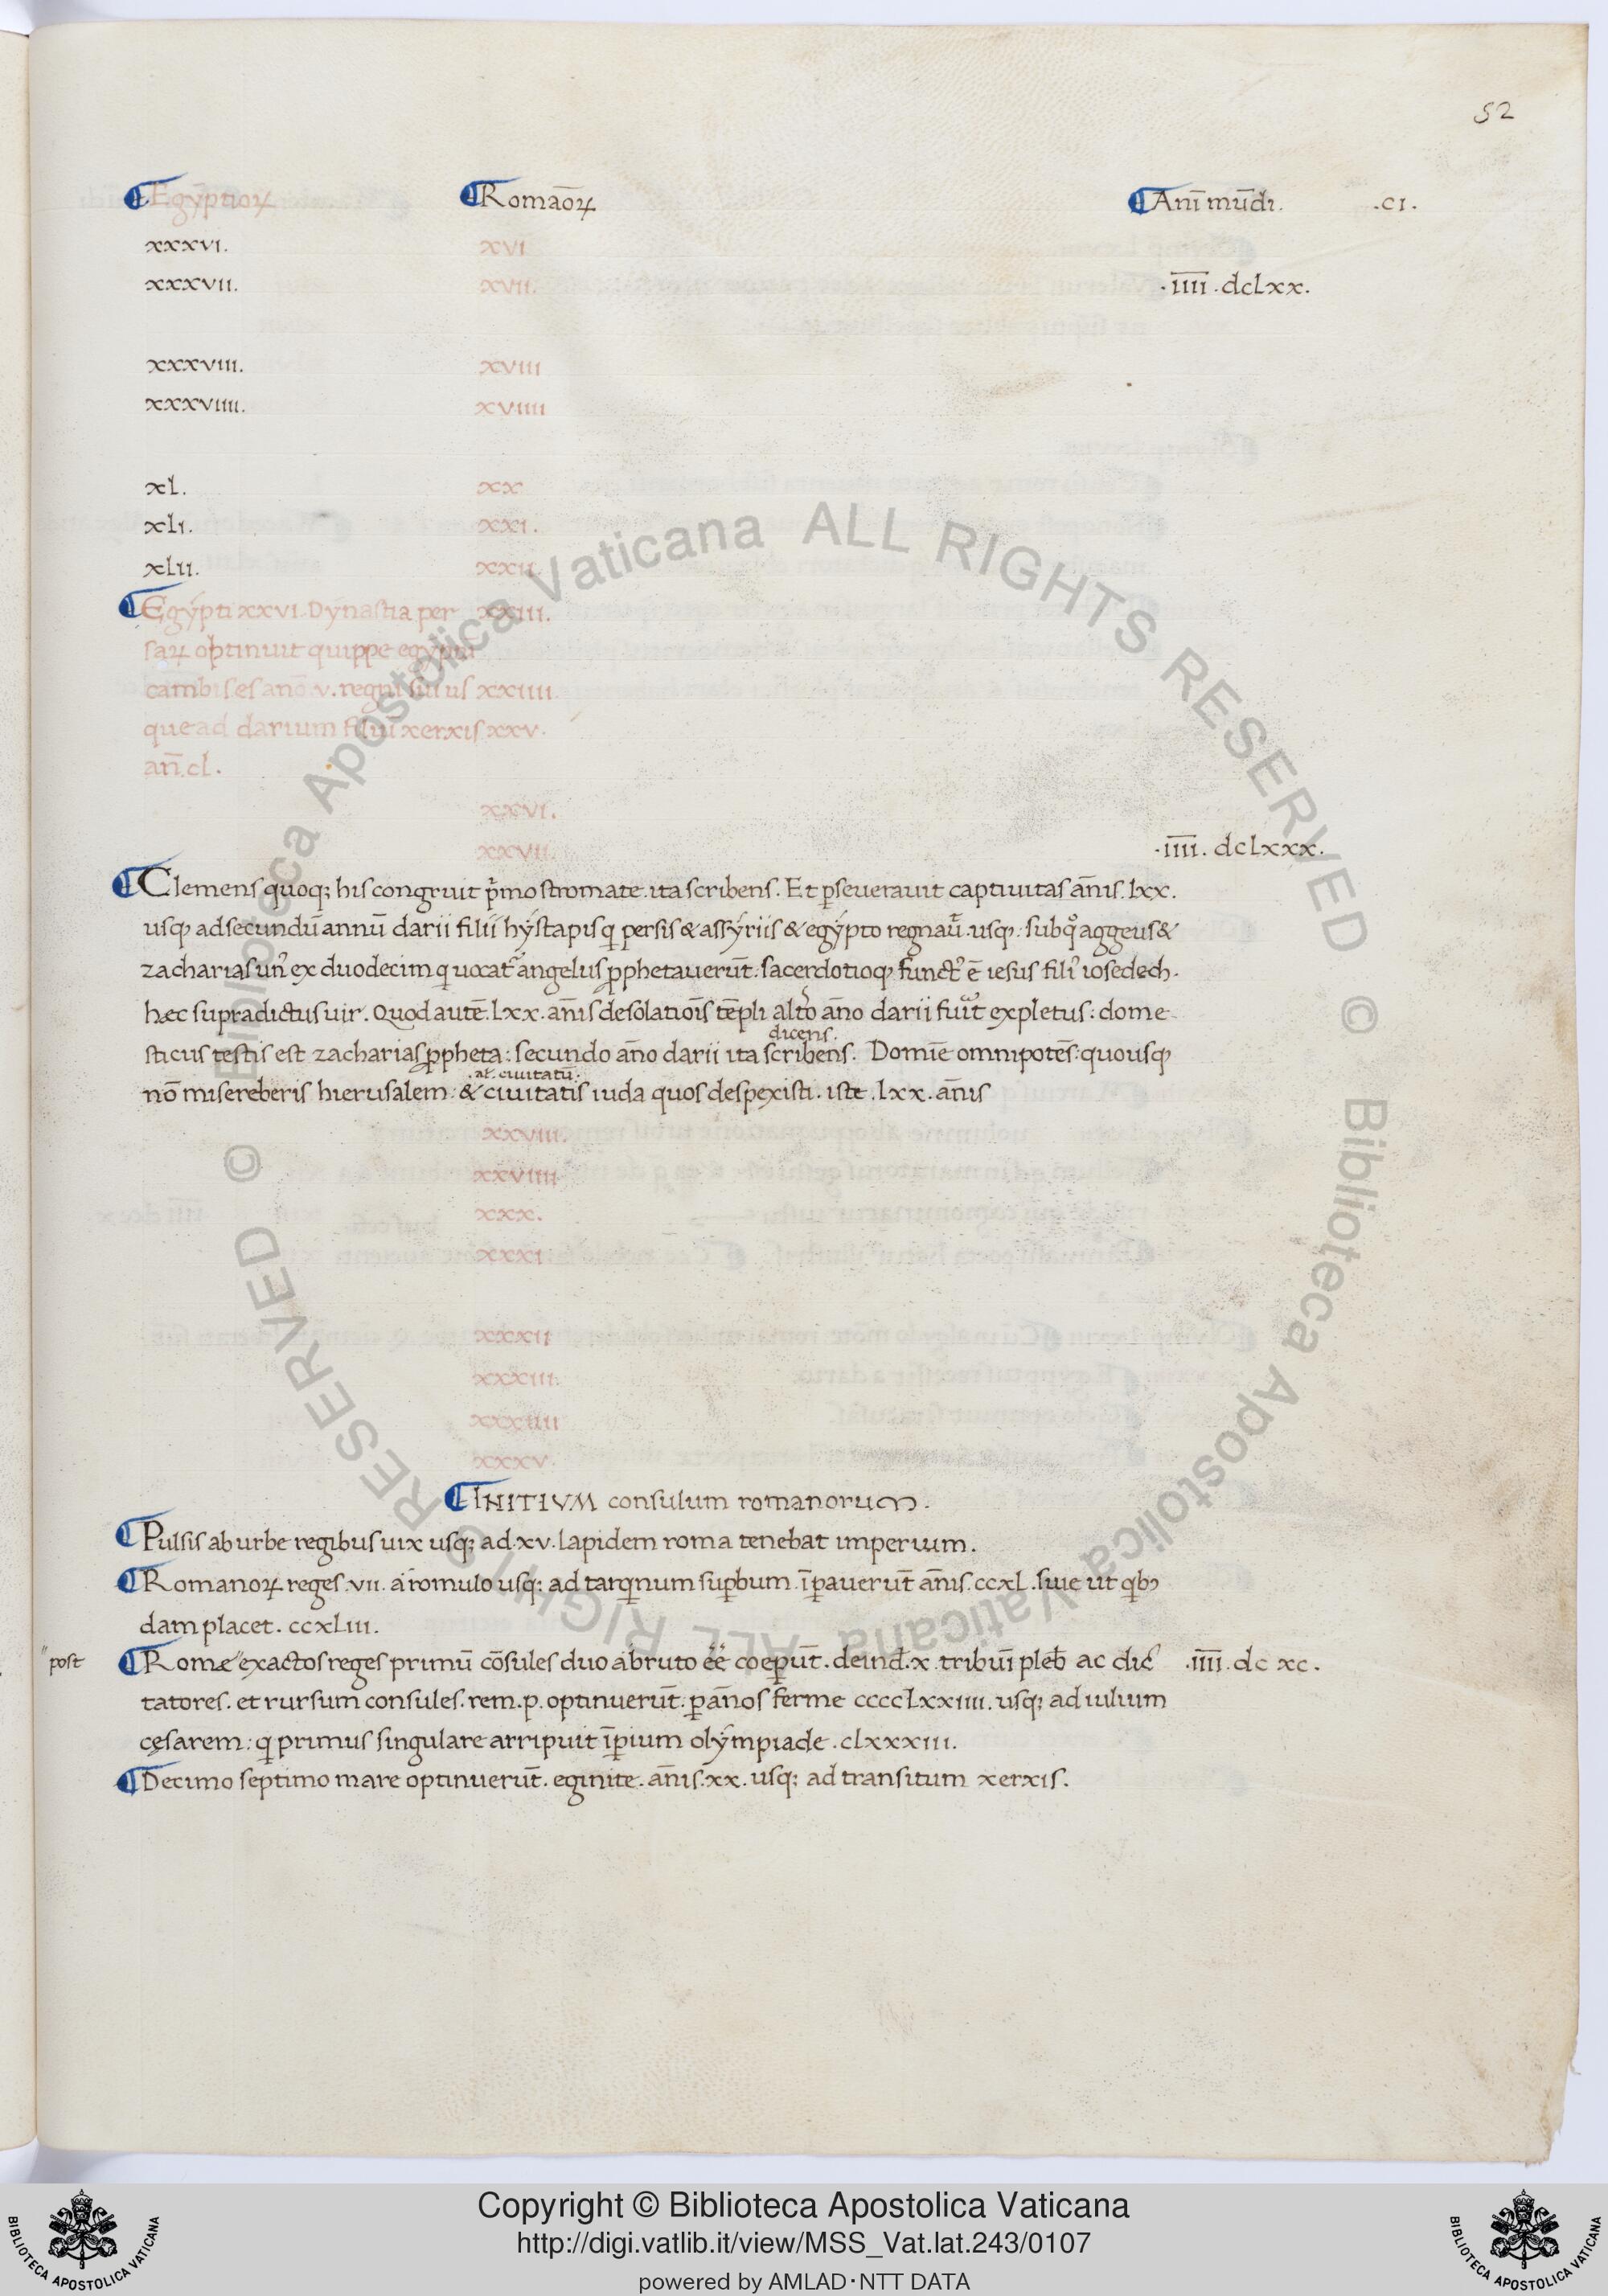 52
Egyptioꝝ Romāoꝝ Anī mūdi. .ci.
xxxvi. xvi
xxxvii. xvii. .iiii. dclxx.
xxxviii. xviii
xxxviiii. xviiii
xl. xx
xli. xxi.
xlii. xxii.
Egýpti xxvi. Dýnastia per xxiii.
saꝝ optinuit quippe egypti
cambises anō v. regni sui us xxiiii.
que ad darium filiū xerxis xxv.
an̄. cl.
xxvi.
xxvii. .iiii. dclxxx.
Clemens quoq; his congruit p̄mo stromate. ita scribens. Et ꝑseuerauit captiuitas an̄is. lxx.
usq; ad secundū annū darii filii hýstapis q̇ persis & assýriis & egýpto regnaū. usq; sub q̊ aggeus &
zacharias un᷒ ex duodecim q̇ uocat᷒ angelus ꝓphetauerūt. sacerdotioq; funct᷒ ē iesus fili᷒ iosedech.
hæc supradictus uir. Quod autē. lxx. an̄is desolatiōis tēpli alt̊o an̄o darii fuīt expletus: dome
dicens.
sticus testis est zacharias ꝓpheta: secundo an̄o darii ita scribens. Domīe omnipotēs: quousq;
.al. ciuitatū.
nō misereberis hierusalem: & ciuitatis iuda quos despexisti. iste. lxx. an̄is
xxviii.
xxviiii.
xxx.
xxxi
xxxii
xxxiii.
xxxiiii
xxxv.
INITIVM consulum romanorum.
Pulsis ab urbe regibus uix usq; ad. xv. lapidem roma tenebat imperium.
Romanoꝝ reges. vii. a romulo usq; ad tarq̇num suꝑbum. īꝑauerūt an̄is. ccxl. siue ut q̇b᷒
dam placet. ccxliii.
post Romæ exactos reges primū cōsules duo a bruto ēē coeꝑūt. deind. x. tribuī pleb ac dic .iiii. dc xc.
tatores. et rursum consules. rem. p. optinuerūt. ꝑ an̄os ferme cccclxxiiii. usq; ad iulium
cęsarem: q̇ primus singulare arripuit īꝑium olýmpiade. clxxxiii.
Decimo septimo mare optinuerūt. eginite. an̄is. xx. usq; ad transitum xerxis.
© Biblioteca Apostolica Vaticana ALL RIGHTS RESERVED © Biblioteca Apostolica Vaticana ALL RIGHTS RESERVED
Copyright © Biblioteca Apostolica Vaticana
http://digi.vatlib.it/view/MSS_Vat.lat.243/0107
powered by AMLAD·NTT DATA
BIBLIOTECA APOSTOLICA VATICANA
BIBLIOTECA APOSTOLICA VATICANA